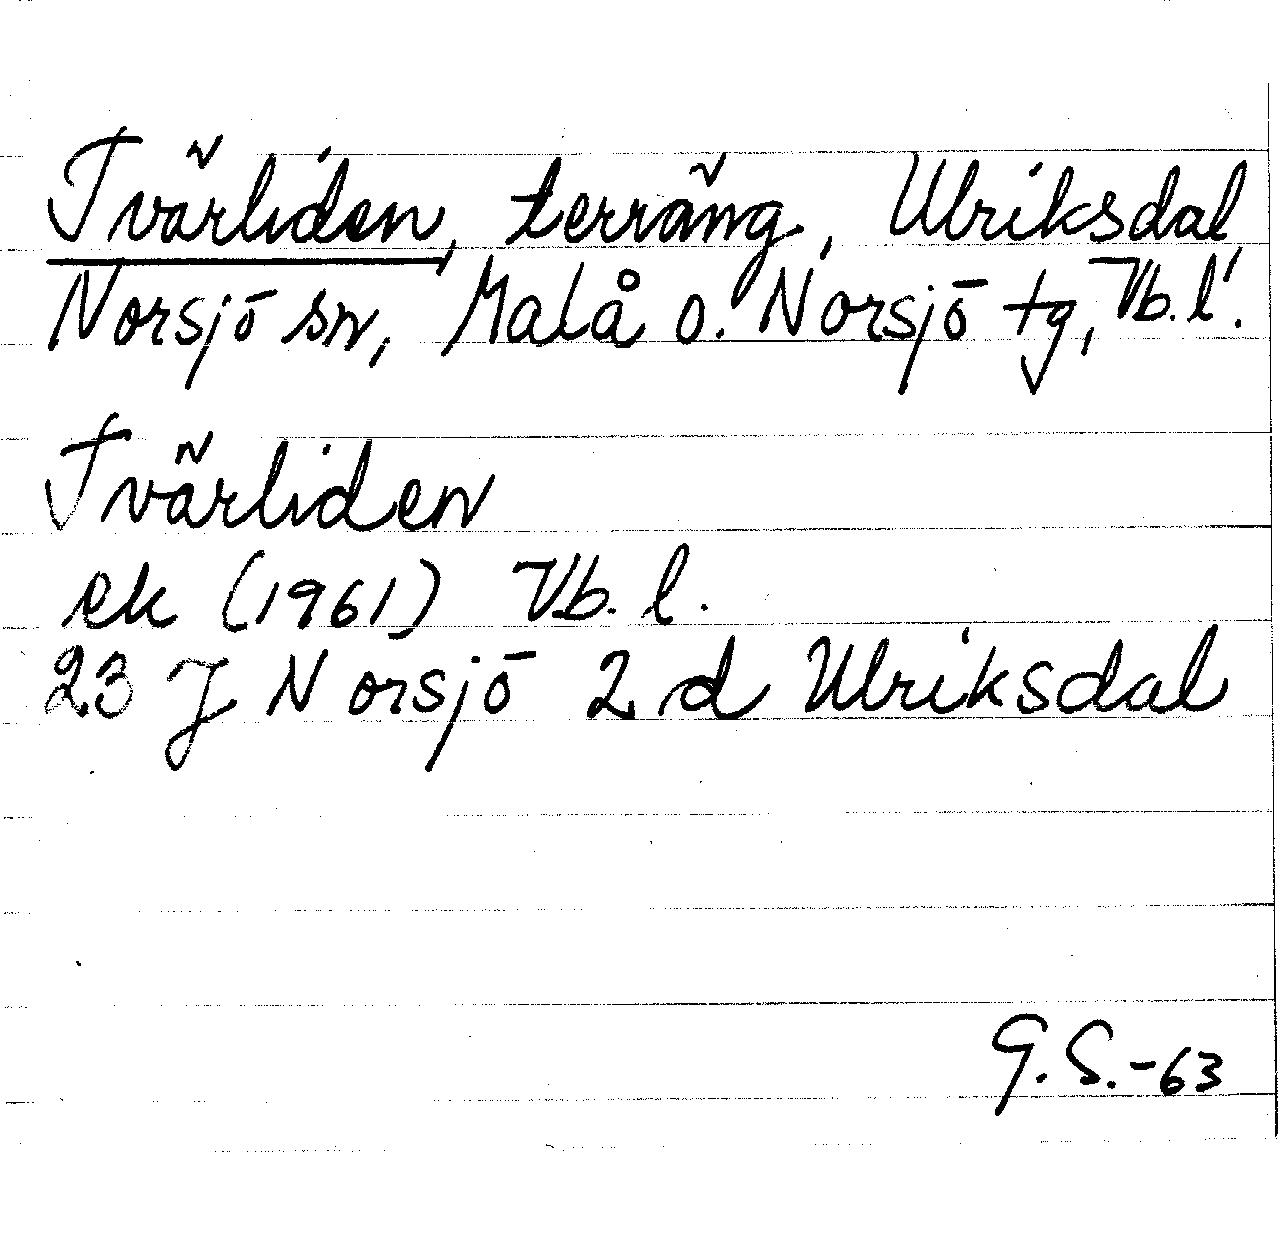 Tvärliden, terräng, Ulriksdal,
Norsjö sn, Malå o. Norsjö tg, Vb. l.
Tvärliden
ek (1961) Vb. l.
23 J Norsjö 2 d Ulriksdal
G.S.-63